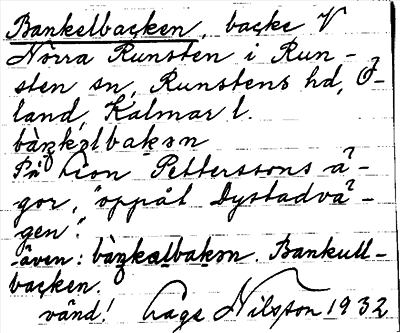 Bankelbacken, backe V
Norra Runsten i Run-
sten sn, Runstens hd, Ö-
land, Kalmar l.
bàŋkəlbakən
På Lion Petterssons ä-
gor, "oppåt Dystadvä-
gen".
även: bàŋkəlbakən. Bankull-
backen.
vänd! Åge Nilsson 1932